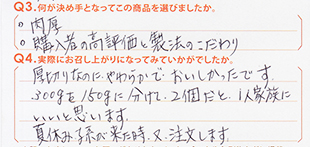 Q3.何が決め手となってこの商品を選びましたか。
○肉厚
○購入者の高評価と製法のこだわり
Q4.実際にお召し上がりになってみていかがでしたか。
厚切りなのに、やわらかで おいしかったです。
300gを150gに分けて、2個だと、1人家族に
いいと思います。
夏休み子孫が来た時、又、注文します